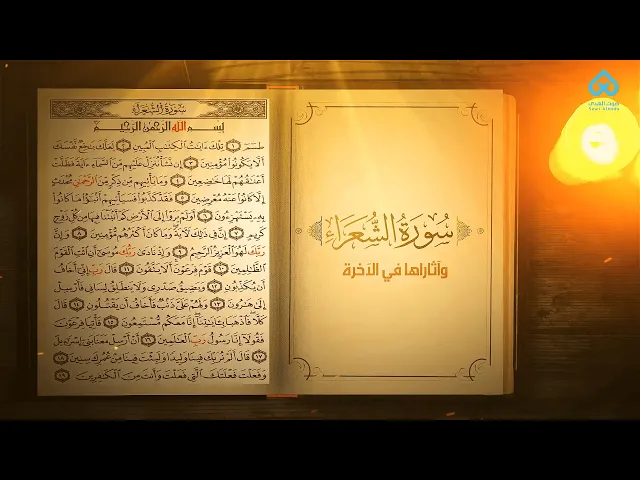 صوت الهدى
سُورَةُ الشُّعَرَاءِ
بِسْمِ اللَّهِ الرَّحْمَٰنِ الرَّحِيمِ
طسٓمٓ ١ تِلْكَ ءَايَٰتُ ٱلْكِتَٰبِ ٱلْمُبِينِ ٢ لَعَلَّكَ بَٰخِعٌ نَّفْسَكَ
أَلَّا يَكُونُوا۟ مُؤْمِنِينَ ٣ إِن نَّشَأْ نُنَزِّلْ عَلَيْهِم مِّنَ ٱلسَّمَآءِ ءَايَةً فَظَلَّتْ
أَعْنَٰقُهُمْ لَهَا خَٰضِعِينَ ٤ وَمَا يَأْتِيهِم مِّن ذِكْرٍ مِّنَ ٱلرَّحْمَٰنِ مُحْدَثٍ
إِلَّا كَانُوا۟ عَنْهُ مُعْرِضِينَ ٥ فَقَدْ كَذَّبُوا۟ فَسَيَأْتِيهِمْ أَنۢبَٰٓؤُا۟ مَا كَانُوا۟
بِهِۦ يَسْتَهْزِءُونَ ٦ أَوَلَمْ يَرَوْا۟ إِلَى ٱلْأَرْضِ كَمْ أَنۢبَتْنَا فِيهَا مِن كُلِّ زَوْجٍ
كَرِيمٍ ٧ إِنَّ فِى ذَٰلِكَ لَءَايَةً وَمَا كَانَ أَكْثَرُهُم مُّؤْمِنِينَ ٨ وَإِنَّ
رَبَّكَ لَهُوَ ٱلْعَزِيزُ ٱلرَّحِيمُ ٩ وَإِذْ نَادَىٰ رَبُّكَ مُوسَىٰٓ أَنِ ٱئْتِ ٱلْقَوْمَ
ٱلظَّٰلِمِينَ ١٠ قَوْمَ فِرْعَوْنَ أَلَا يَتَّقُونَ ١١ قَالَ رَبِّ إِنِّىٓ أَخَافُ
أَن يُكَذِّبُونِ ١٢ وَيَضِيقُ صَدْرِى وَلَا يَنطَلِقُ لِسَانِى فَأَرْسِلْ
إِلَىٰ هَٰرُونَ ١٣ وَلَهُمْ عَلَىَّ ذَنۢبٌ فَأَخَافُ أَن يَقْتُلُونِ ١٤ قَالَ
كَلَّا فَٱذْهَبَا بِـَٔايَٰتِنَآ إِنَّا مَعَكُم مُّسْتَمِعُونَ ١٥ فَأْتِيَا فِرْعَوْنَ
فَقُولَآ إِنَّا رَسُولُ رَبِّ ٱلْعَٰلَمِينَ ١٦ أَنْ أَرْسِلْ مَعَنَا بَنِىٓ إِسْرَٰٓءِيلَ
١٧ قَالَ أَلَمْ نُرَبِّكَ فِينَا وَلِيدًا وَلَبِثْتَ فِينَا مِنْ عُمُرِكَ سِنِينَ ١٨
وَفَعَلْتَ فَعْلَتَكَ ٱلَّتِى فَعَلْتَ وَأَنتَ مِنَ ٱلْكَٰفِرِينَ ١٩
سُورَةُ الشُّعَرَاءِ
وآثاراها في الآخرة